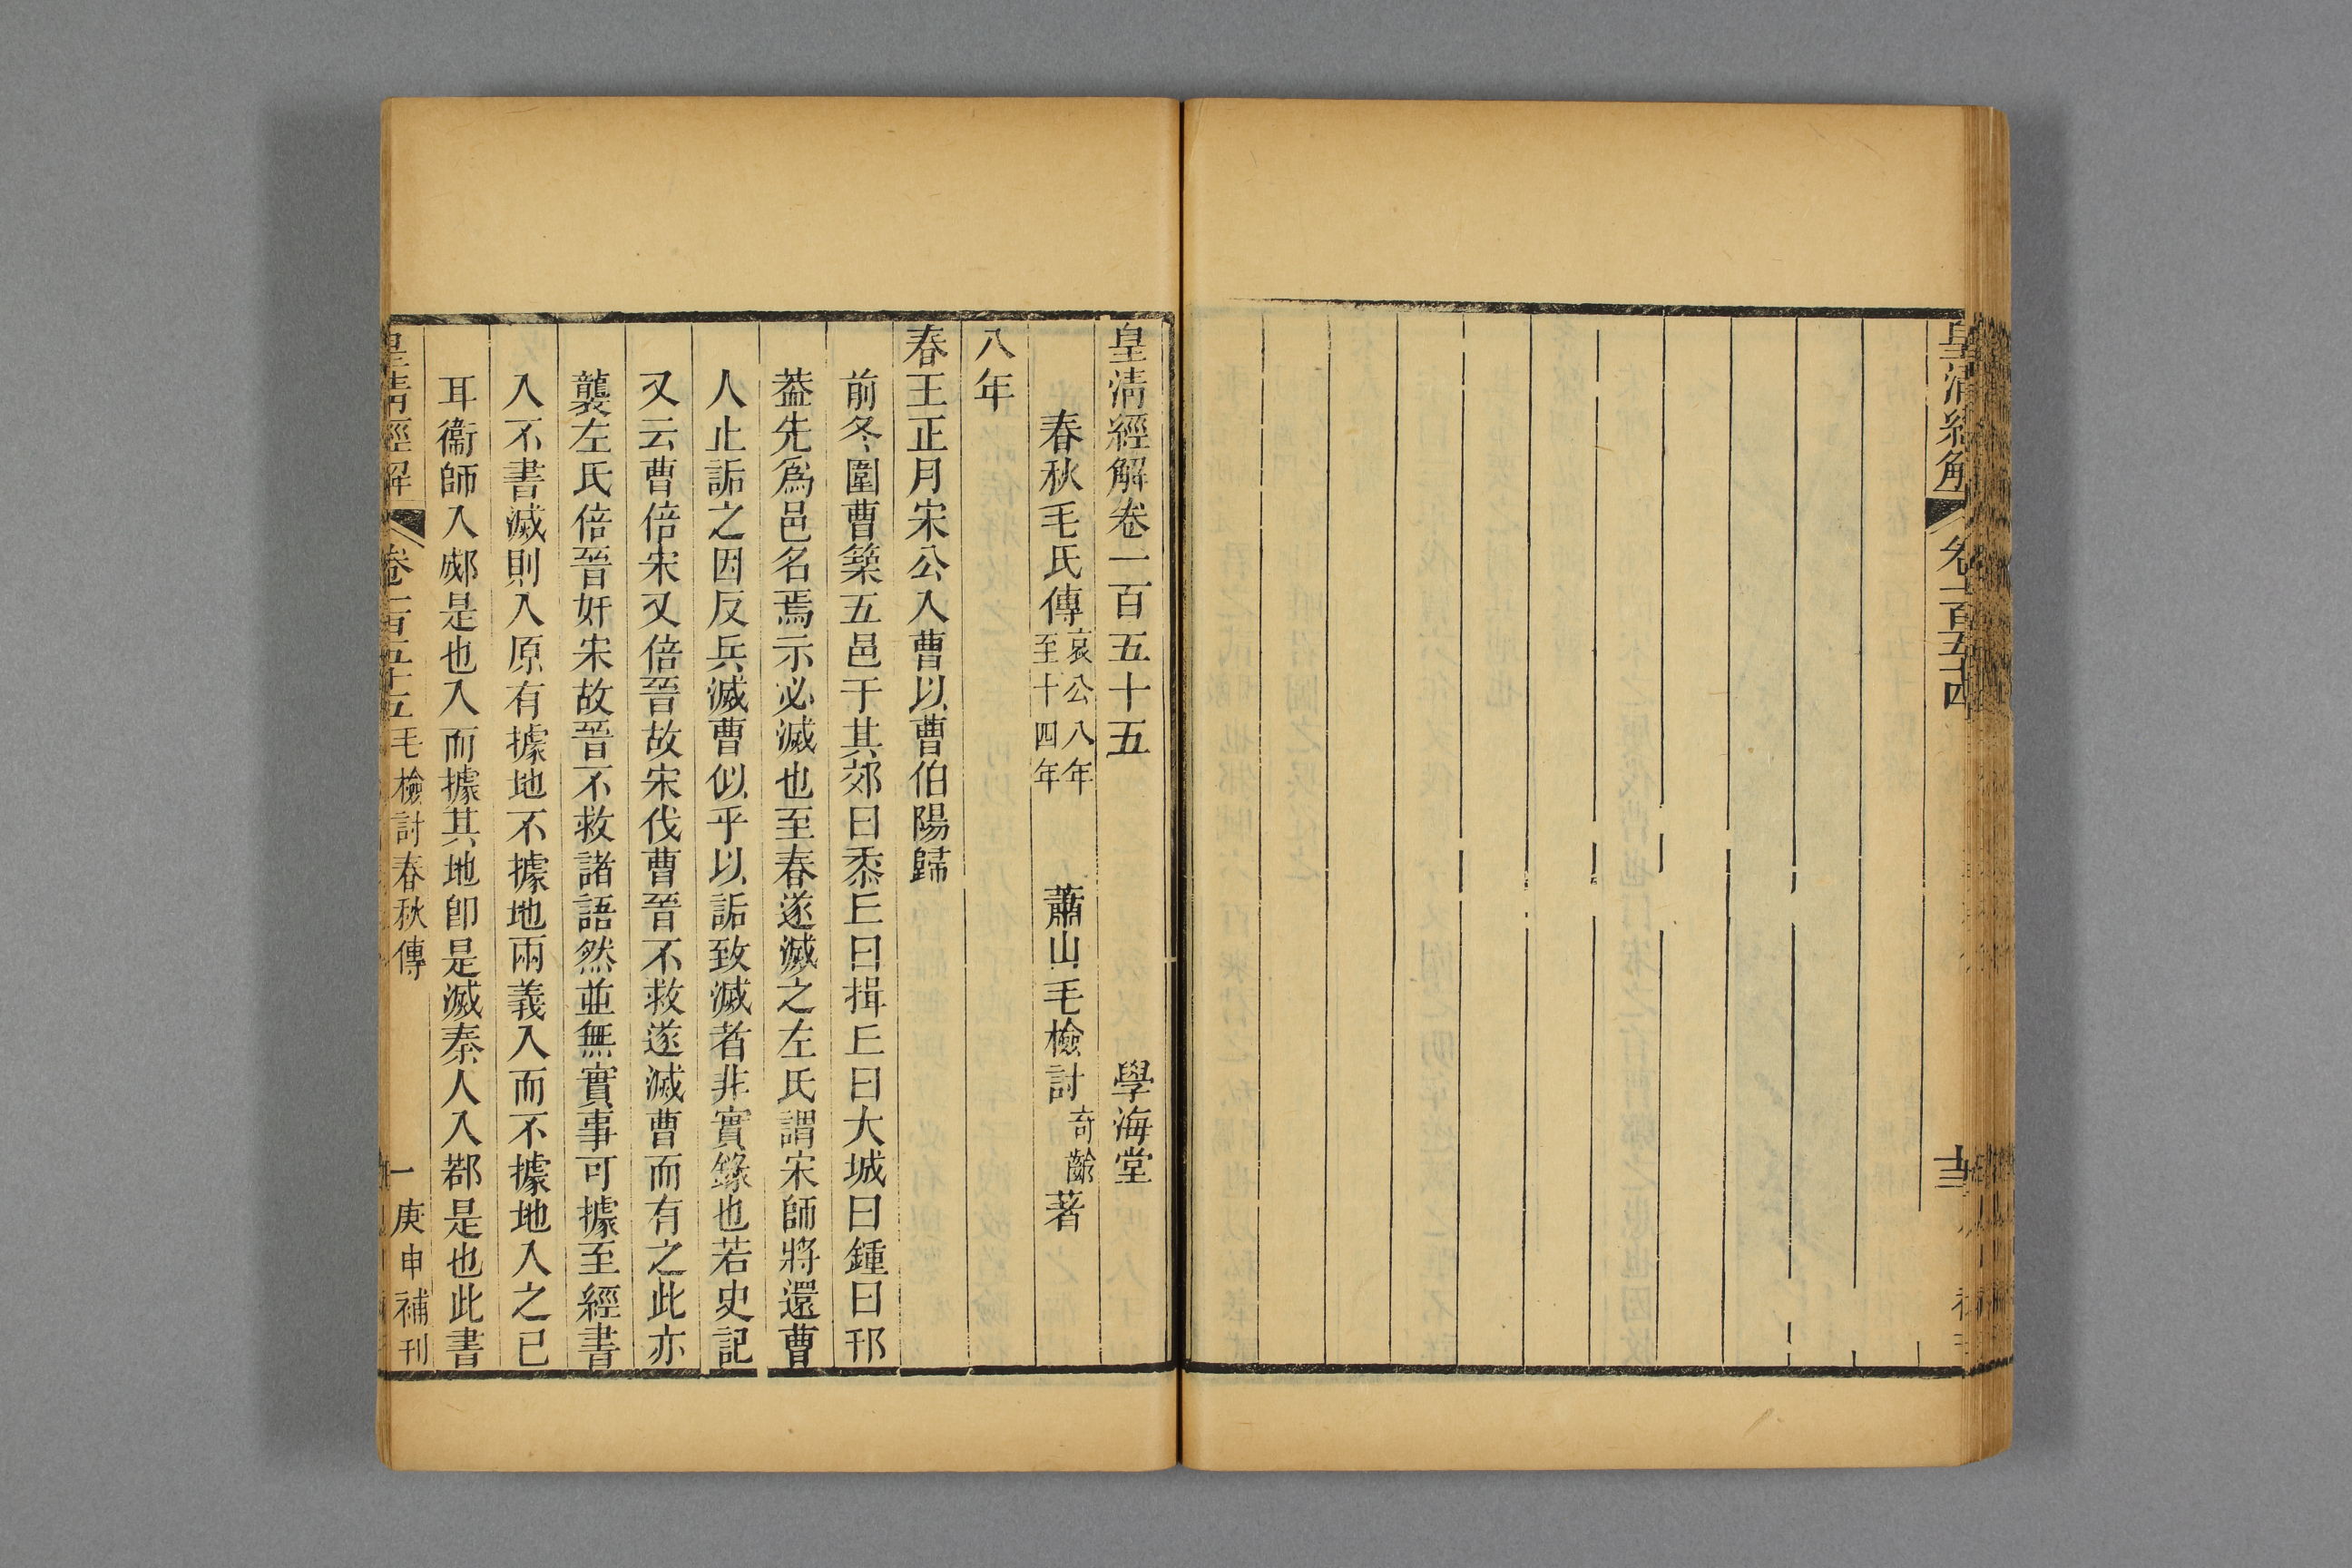 皇清經解
卷一百五十四
皇清經解卷一百五十五
學海堂
春秋毛氏傳
哀公八年
至十四年
蕭山毛檢討奇齡著
八年
春王正月宋公入曹以曹伯陽歸
前冬圍曹築五邑于其郊曰黍𠀉曰揖𠀉曰大城曰鍾曰邘
葢先爲邑名焉示必滅也至春遂滅之左氏謂宋師將還曹
人止詬之因反兵滅曹似乎以詬致滅者非實錄也若史記
又云曹倍宋又倍晉故宋伐曹晉不救遂滅曹而有之此亦
襲左氏倍晉奸宋故晉不救諸語然並無實事可據至經書
入不書滅則入原有據地不據地兩義入而不據地入之已
耳衞師入郕是也入而據其地卽是滅秦人入鄀是也此書
皇清經解
卷一百五十五
毛檢討春秋傳
一
庚申補刊